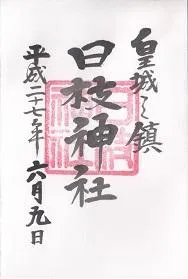 皇城之鎮
日枝神社
平成二十七年六月九日